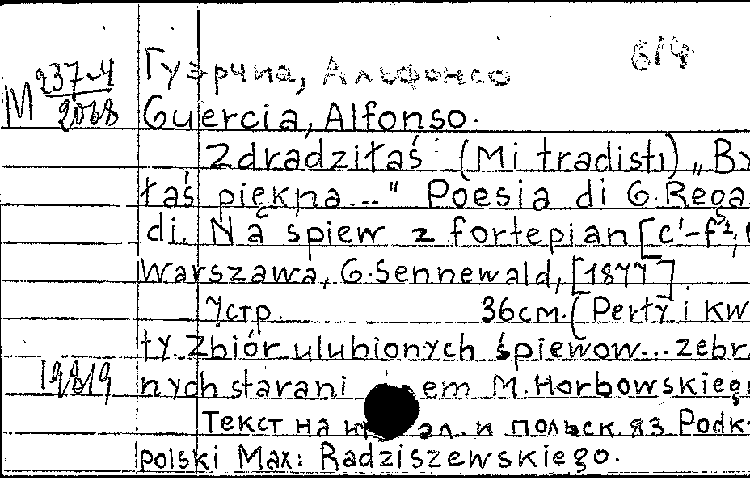 М 237-4/2068
Гуэрчиа, Альфонсо
Guercia, Alfonso.
Zdradziłaś (Mi tradisti) „By
łaś piękna..." Poesia di G. Rega
di. Na śpiew z fortepian [c¹-f²,
Warszawa, G. Sennewald, [1877]
7 стр. 36 см. (Perły i kw
ty. Zbiór ulubionych śpiewow... zebr
nych starani em M. Horbowskieg
Текст на и польск. яз. Podk
polski Max: Radziszewskiego.